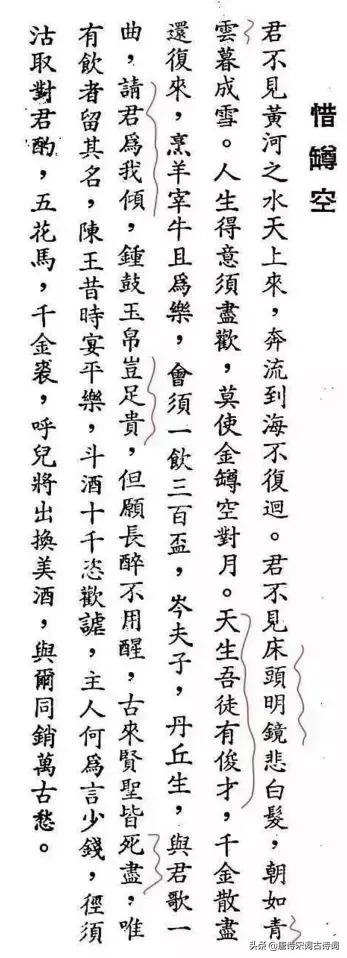 惜罇空
君不見黃河之水天上來，奔流到海不復迴。君不見床頭明鏡悲白髮，朝如青
雲暮成雪。人生得意須盡歡，莫使金罇空對月。天生吾徒有俊才，千金散盡
還復來，烹羊宰牛且爲樂，會須一飲三百盃，岑夫子，丹丘生，與君歌一
曲，請君爲我傾，鍾鼓玉帛豈足貴，但願長醉不用醒，古來賢聖皆死盡，唯
有飲者留其名，陳王昔時宴平樂，斗酒十千恣歡謔，主人何爲言少錢，徑須
沽取對君酌，五花馬，千金裘，呼兒將出換美酒，與爾同銷萬古愁。
头条 @唐诗宋词古诗词